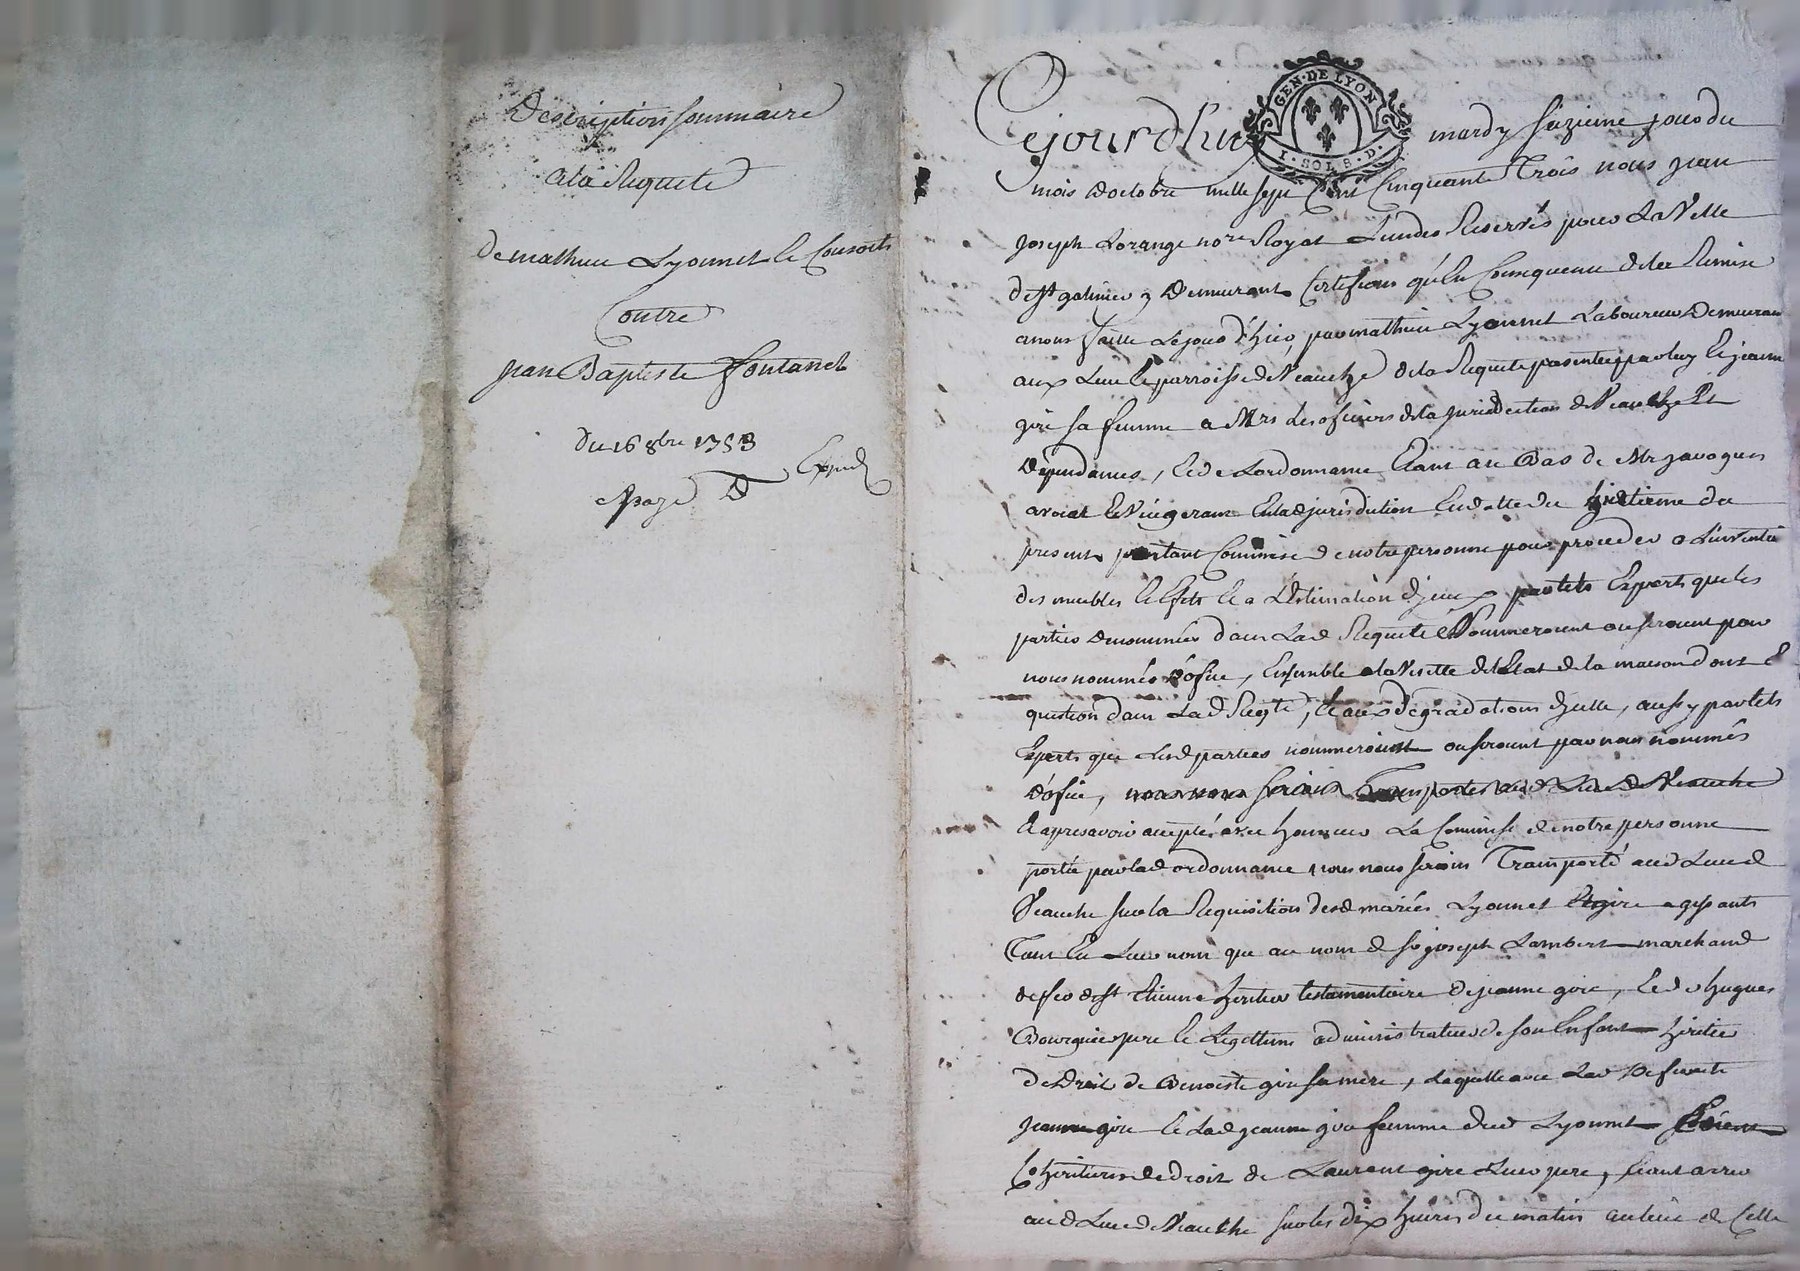 Description sommaire
a la Requete
de mathieu Lyonnet & Consorts
Contre
jean Baptiste Fontanel
du 16 8bre 1753
Expedié
GEN. DE LYON
1. SOL 8. D.
Cejourd'huy mardy seizieme jour du
mois d'octobre mille sept Cent Cinquante Trois nous jean
joseph Lorange nore Royal Reservés pour La Ville
de st galmier y demeurant Certifions qu'En Consequence de la Remise
a nous faitte Le jour d'hier, par mathieu Lyonnet Laboureur demeurant
aux Lieu & parroisse de Veauche de la Requete presentée par luy & jeanne
gire sa femme a Mrs Les oficiers de la jurisdiction de Veauche Et
dependances, & de Lordonnance Etant au Bas de Mr javogues
avocat & Viegerant En lad jurisdiction En datte du huitieme du
present portant Commise de notre personne pour proceder a Linventaire
des meubles & Effets & a L'Estimation d'jceux par tels Experts que les
parties denommées dans Lad Requete Nommeroient ou seroient par
nous nommés d'ofice, Ensemble a la Visitte de l'Etat de la maison dont Est
question dans Lad Reqte, & aux degradations d'jcelle, aussy par tels
Experts que Lesd parties nommeroient ou seroient par nous nommés
d'ofice, nous nous serions Transportés aud Lieu de Veauche
& apres avoir accepté avec honneur La Commise de notre personne
portée par lad ordonnance nous nous serions Transporté aud Lieu de
Veauche sur la Requisition desd mariés Lyonnet Et gire agissants
Tant En Leur nom que au nom de sr joseph Lambert marchand
de fer de st Etienne heritier testamentaire de jeanne gire, & de hugues
pere & Legittime administrateur de son Enfant heritier
de Droit de Benoiste gire sa mere, Laquelle avec Lad Defunte
jeanne gire & Lad jeanne gire femme dud Lyonnet
Coheritieres de droit de Laurent gire Leur pere, Etant arrivé
aud Lieu de Veauche sur les dix heures du matin au lieu de Celle